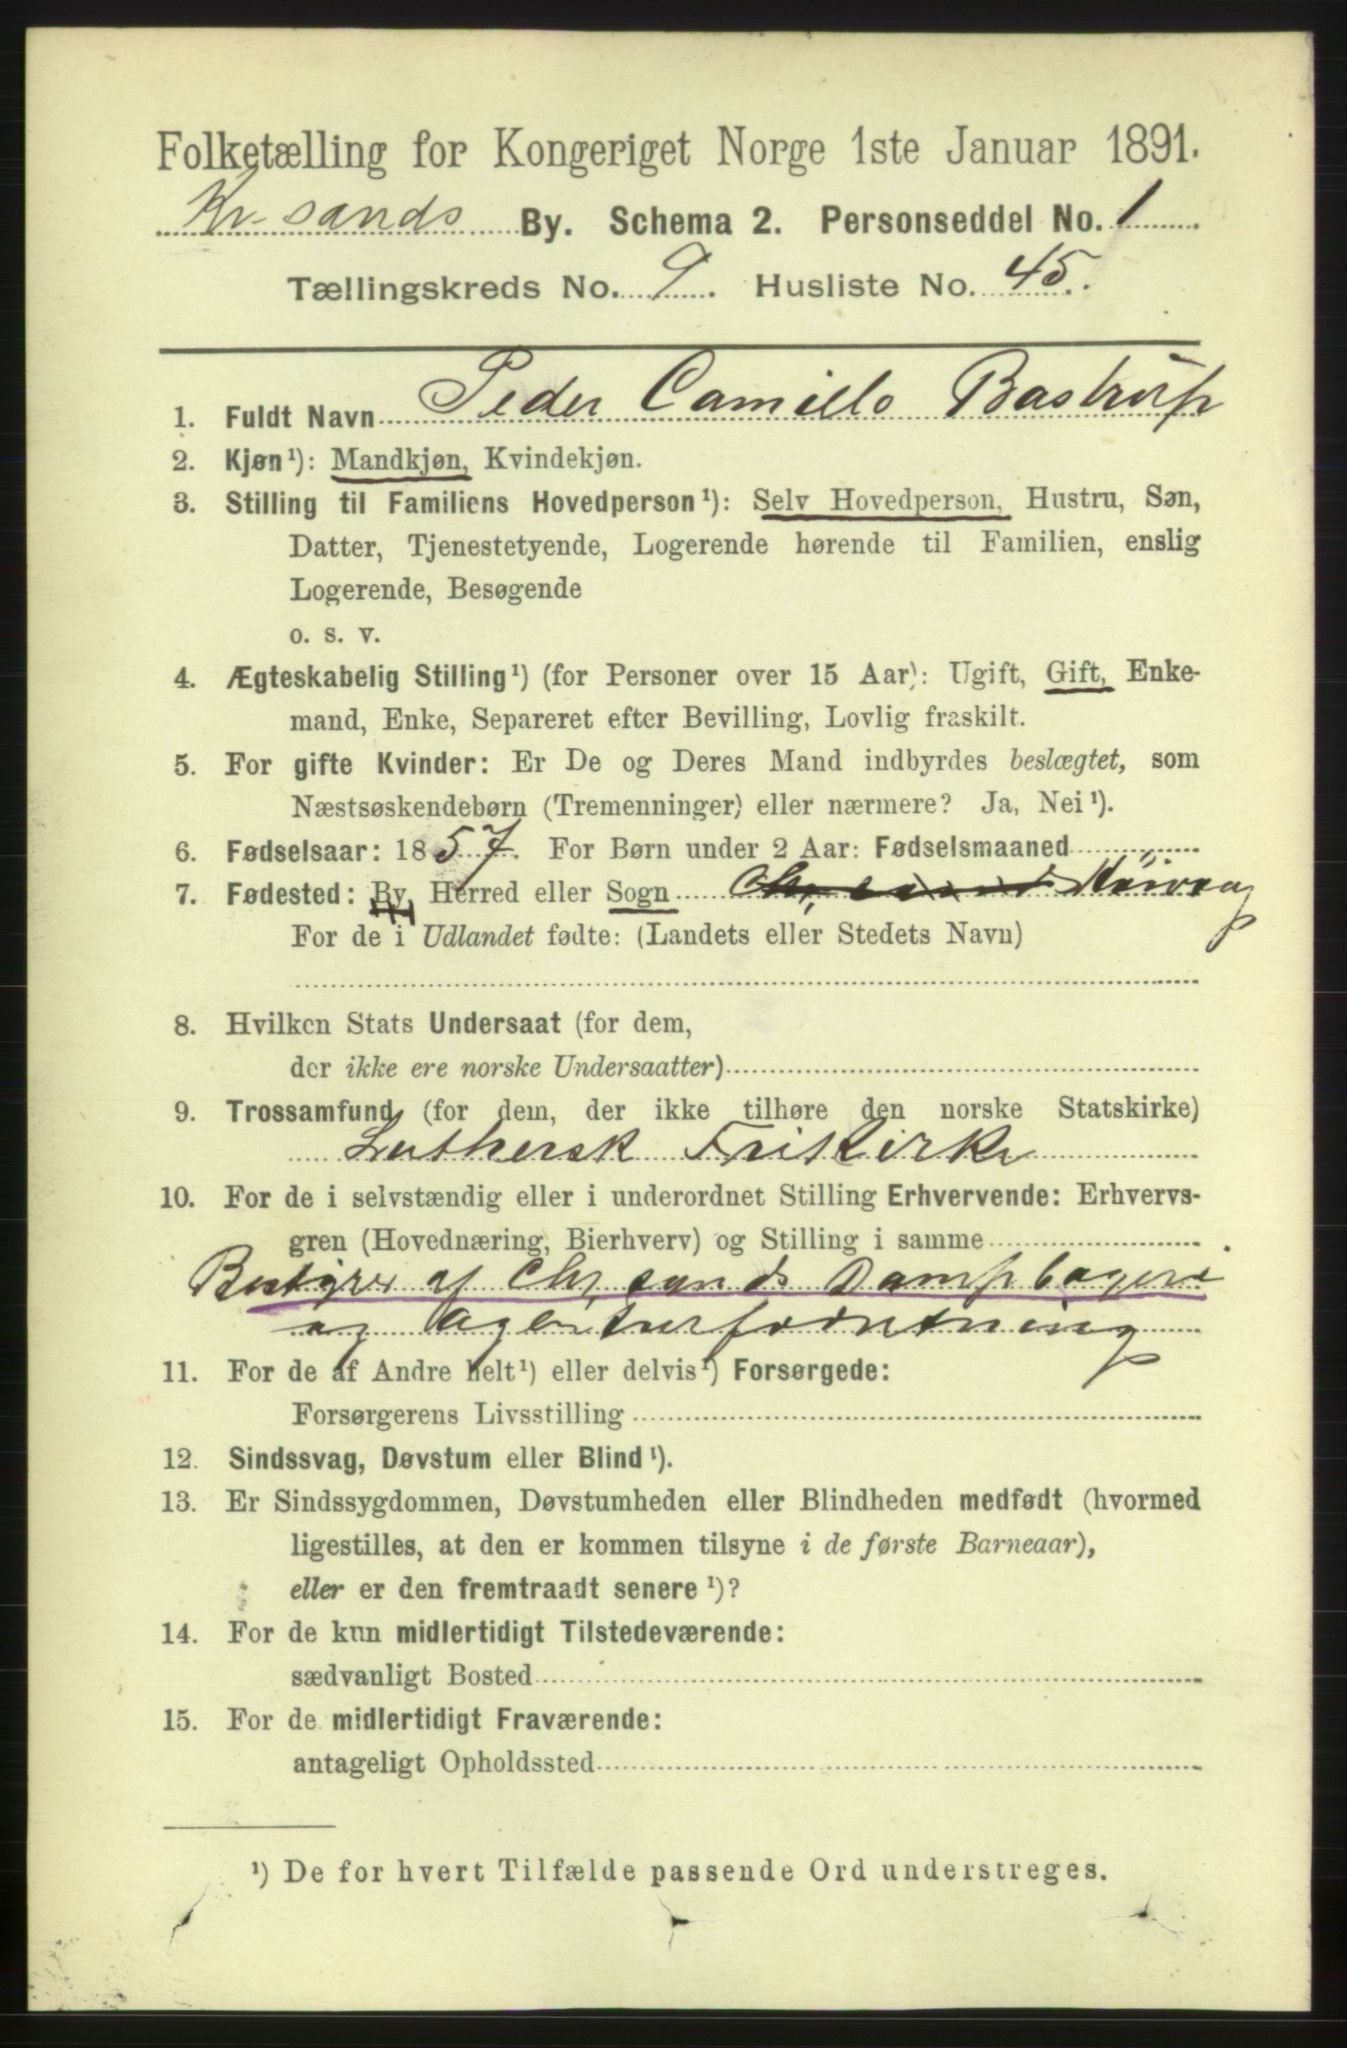 Folketælling for Kongeriget Norge 1ste Januar 1891.
Kr.sands By. Schema 2. Personseddel No. 1
Tællingskreds No. 9. Husliste No. 45.
1. Fuldt Navn Peder Camillo Bastrup
2. Kjøn¹): Mandkjøn, Kvindekjøn.
3. Stilling til Familiens Hovedperson¹): Selv Hovedperson, Hustru, Søn,
Datter, Tjenestetyende, Logerende hørende til Familien, enslig
Logerende, Besøgende
o. s. v.
4. Ægteskabelig Stilling¹) (for Personer over 15 Aar): Ugift, Gift, Enke-
mand, Enke, Separeret efter Bevilling, Lovlig fraskilt.
5. For gifte Kvinder: Er De og Deres Mand indbyrdes beslægtet, som
Næstsøskendebørn (Tremenninger) eller nærmere? Ja, Nei¹).
6. Fødselsaar: 1857. For Børn under 2 Aar: Fødselsmaaned
7. Fødested: By, Herred eller Sogn Chr.sand Høivaag
For de i Udlandet fødte: (Landets eller Stedets Navn)
8. Hvilken Stats Undersaat (for dem,
der ikke ere norske Undersaatter)
9. Trossamfund (for dem, der ikke tilhøre den norske Statskirke)
Luthersk Frikirke
10. For de i selvstændig eller i underordnet Stilling Erhvervende: Erhvervs-
gren (Hovednæring, Bierhverv) og Stilling i samme
Bestyrer af Chr.sands Dampbageri
og Agenturforretning
11. For de af Andre helt¹) eller delvis¹) Forsørgede:
Forsørgerens Livsstilling
12. Sindssvag, Døvstum eller Blind¹).
13. Er Sindssygdommen, Døvstumheden eller Blindheden medfødt (hvormed
ligestilles, at den er kommen tilsyne i de første Barneaar),
eller er den fremtraadt senere¹)?
14. For de kun midlertidigt Tilstedeværende:
sædvanligt Bosted
15. For de midlertidigt Fraværende:
antageligt Opholdssted
¹) De for hvert Tilfælde passende Ord understreges.